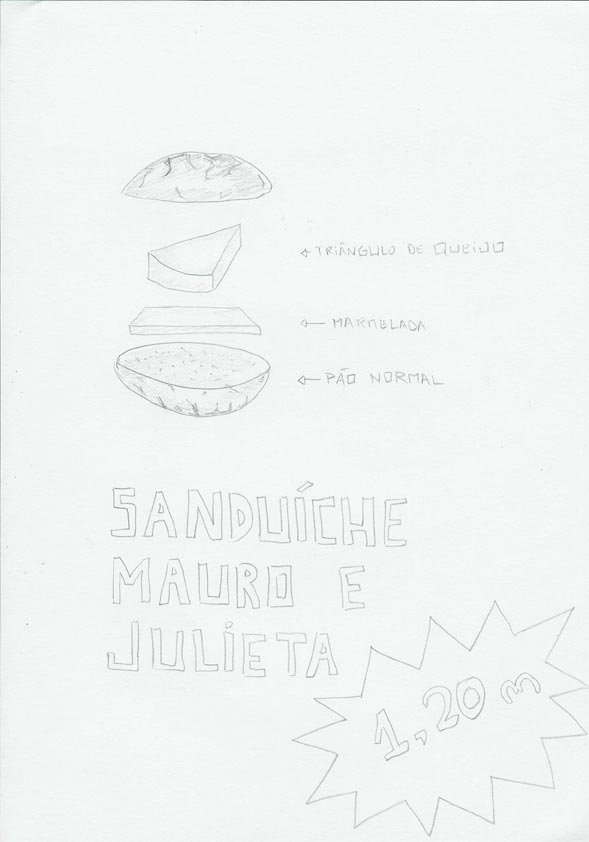 TRIÂNGULO DE QUEIJO
MARMELADA
PÃO NORMAL
SANDUÍCHE
MAURO E
JULIETA
1,20 m